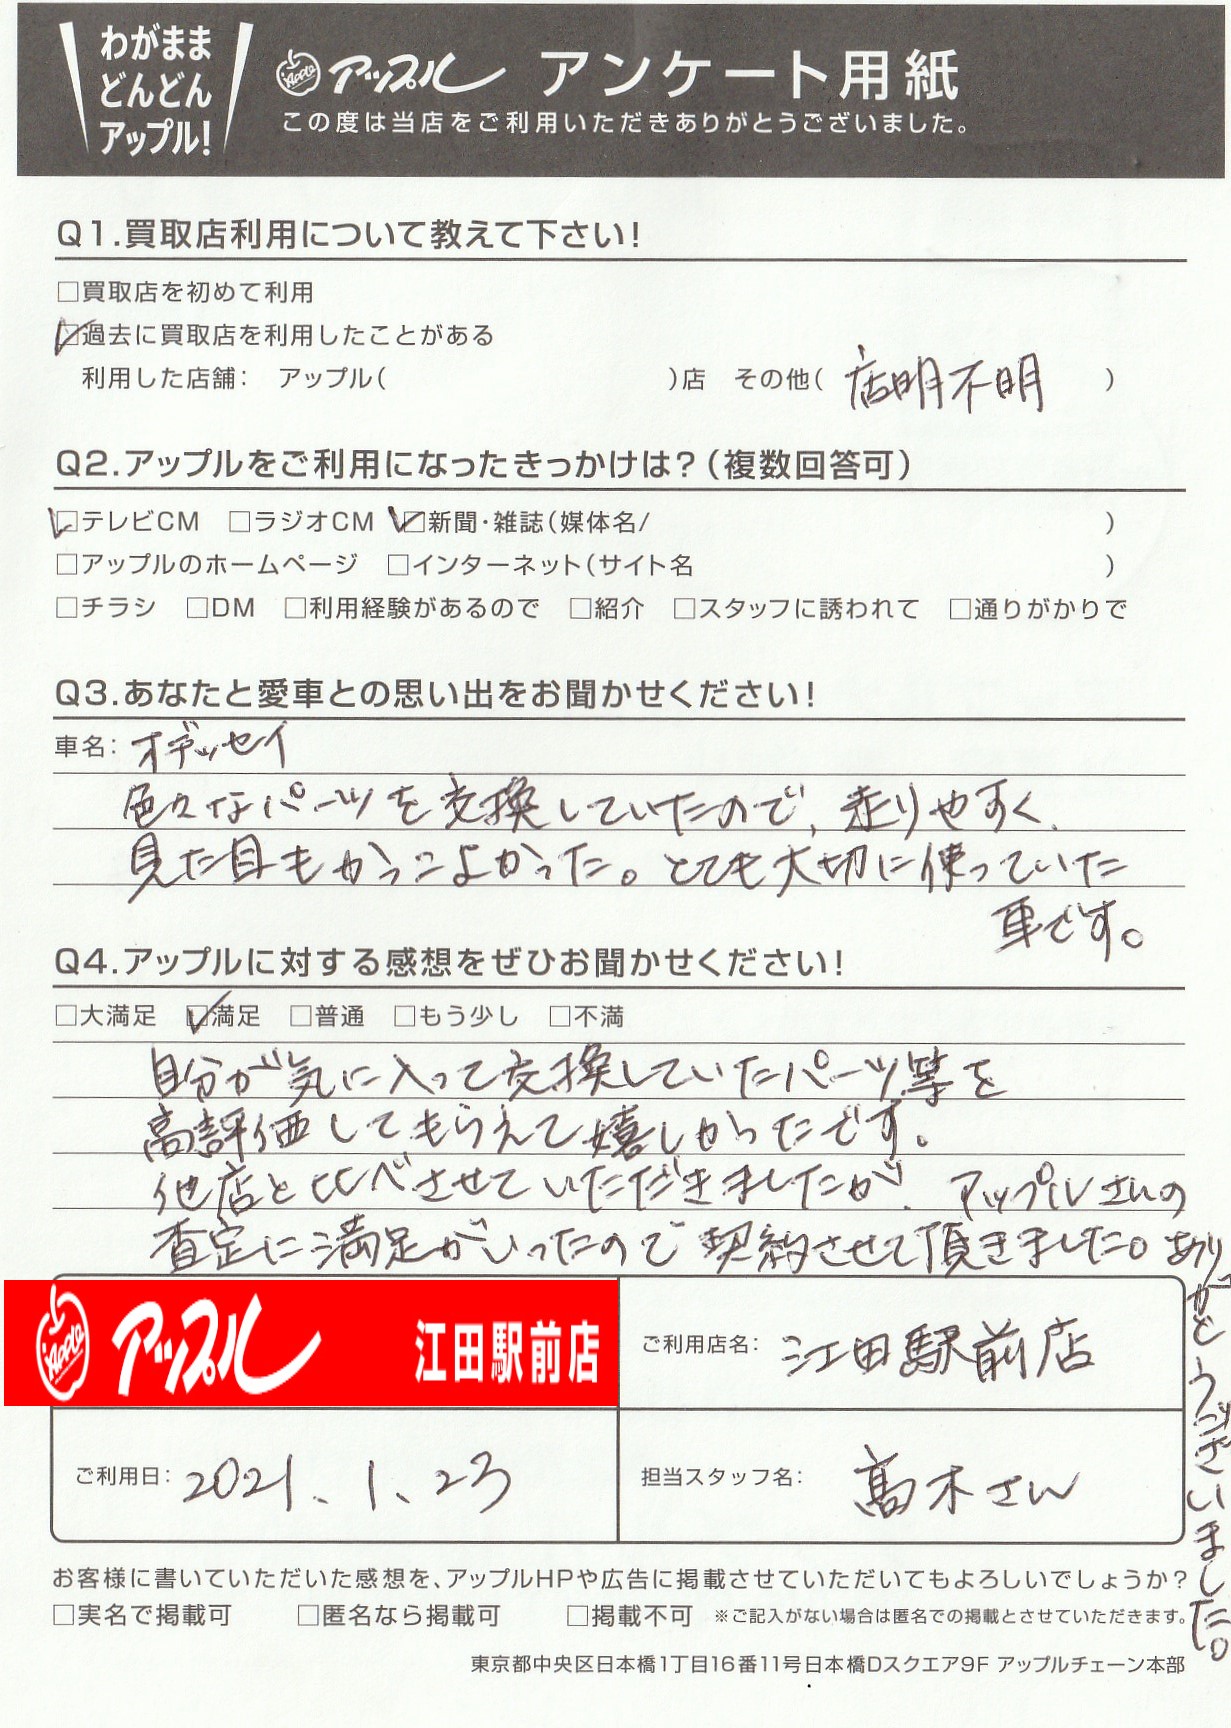 わがまま
どんどん
アップル!
Apple アップル アンケート用紙
この度は当店をご利用いただきありがとうございました。
Q1.買取店利用について教えて下さい!
□買取店を初めて利用
☑過去に買取店を利用したことがある
利用した店舗: アップル( )店 その他( 店明不明 )
Q2.アップルをご利用になったきっかけは?(複数回答可)
☑テレビCM □ラジオCM ☑新聞・雑誌(媒体名/ )
□アップルのホームページ □インターネット(サイト名 )
□チラシ □DM □利用経験があるので □紹介 □スタッフに誘われて □通りがかりで
Q3.あなたと愛車との思い出をお聞かせください!
車名: オデッセイ
色々なパーツを交換していたので、走りやすく、
見た目もかっこよかった。とても大切に使っていた
車です。
Q4.アップルに対する感想をぜひお聞かせください!
□大満足 ☑満足 □普通 □もう少し □不満
自分が気に入って交換していたパーツ等を
高評価してもらえて嬉しかったです。
他店と比べさせていただきましたが、アップルさんの
査定に満足がいったので契約させて頂きました。あり
がとうございました。
Apple アップル 江田駅前店
ご利用店名: 江田駅前店
ご利用日: 2021、1、23
担当スタッフ名: 髙木さん
お客様に書いていただいた感想を、アップルHPや広告に掲載させていただいてもよろしいでしょうか?
□実名で掲載可 □匿名なら掲載可 □掲載不可 ※ご記入がない場合は匿名での掲載とさせていただきます。
東京都中央区日本橋1丁目16番11号日本橋Dスクエア9F アップルチェーン本部